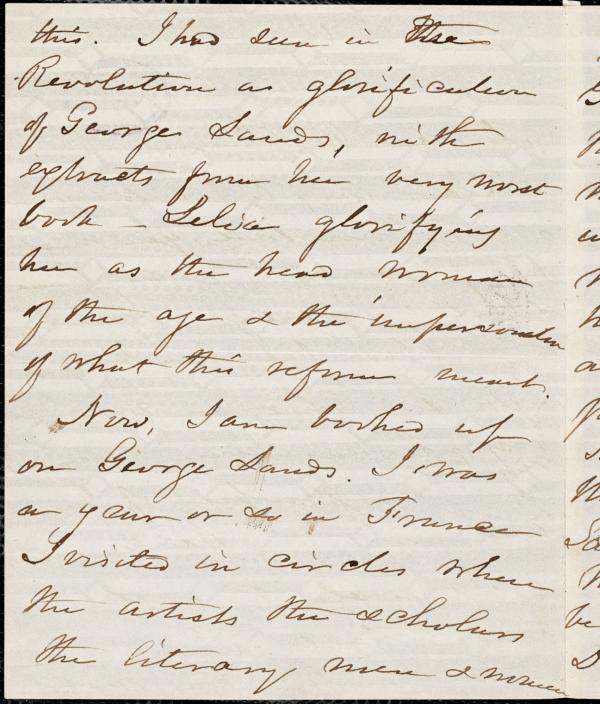 this. I had seen in the
Revolution a glorification
of George Sands, with
extracts from her very worst
book - Lelia glorifying
her as the head woman
of the age & the impersonation
of what this reform meant.
Now, I am booked up
on George Sands. I was
a year or so in France
I visited in circles where
the artists the scholars
the literary men & women